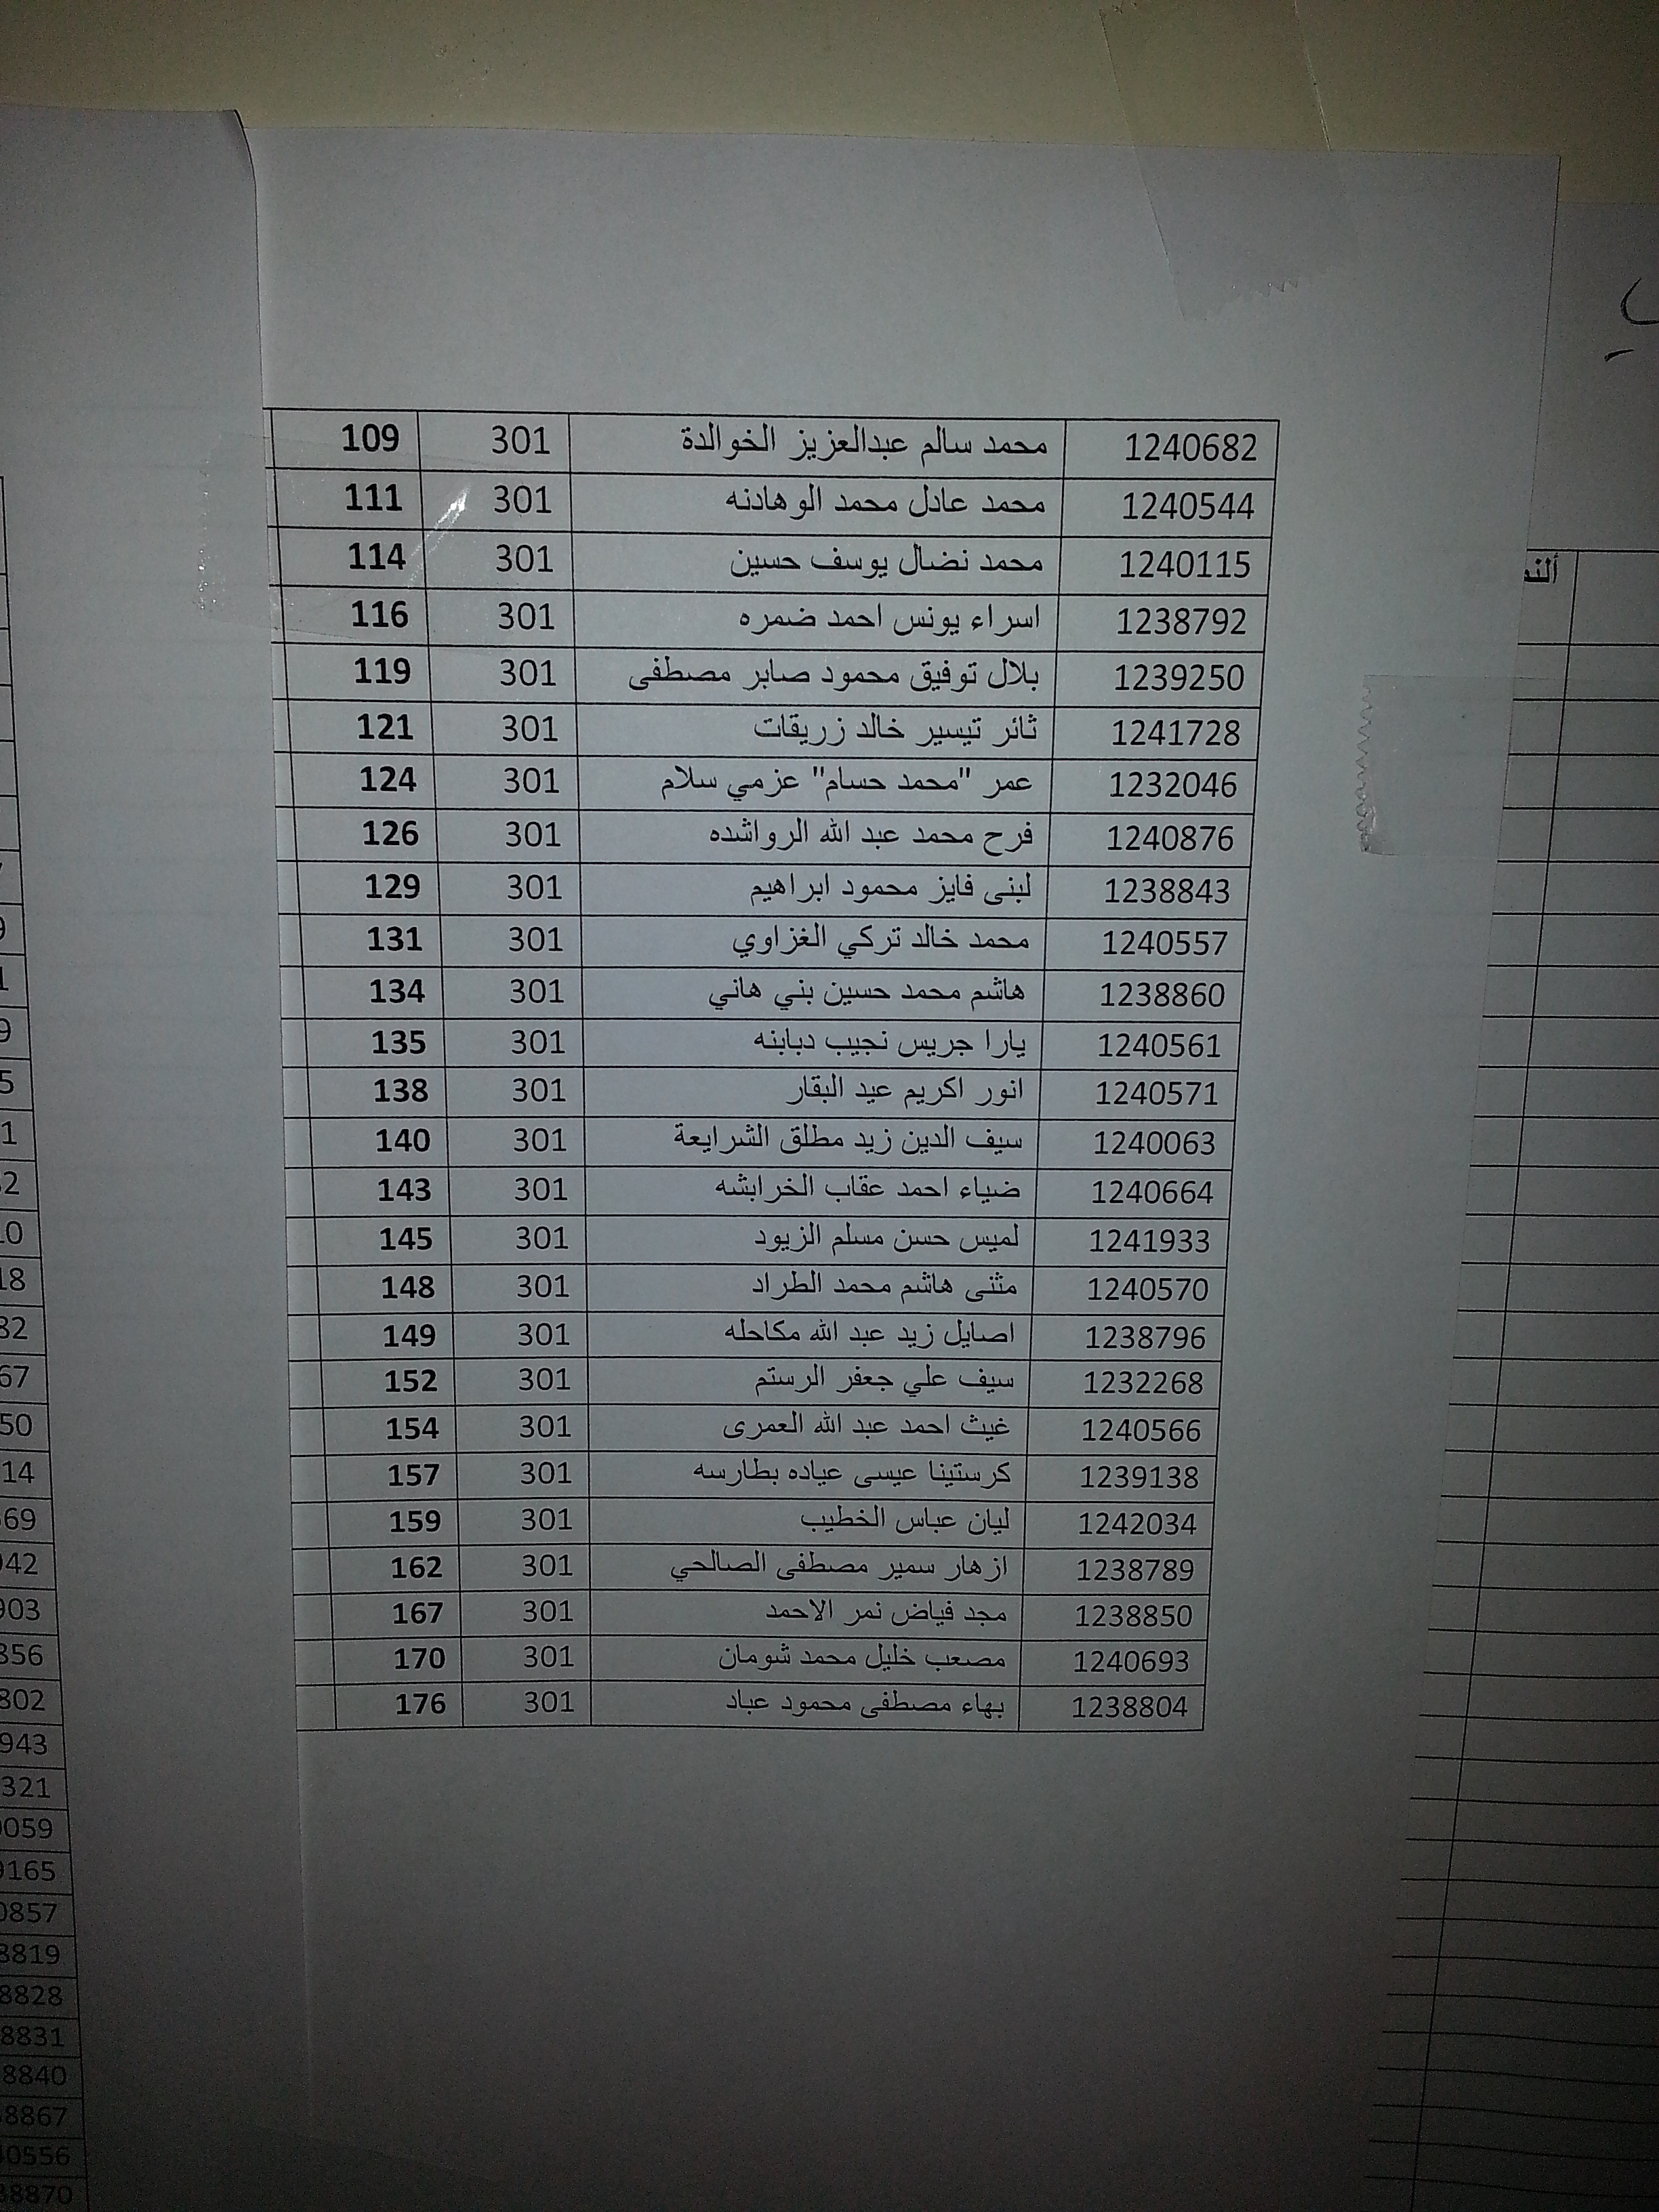 1240682 محمد سالم عبدالعزيز الخوالدة 301 109
1240544 محمد عادل محمد الوهادنه 301 111
1240115 محمد نضال يوسف حسين 301 114
1238792 اسراء يونس احمد ضمره 301 116
1239250 بلال توفيق محمود صابر مصطفى 301 119
1241728 ثائر تيسير خالد زريقات 301 121
1232046 عمر "محمد حسام" عزمي سلام 301 124
1240876 فرح محمد عبد الله الرواشده 301 126
1238843 لبنى فايز محمود ابراهيم 301 129
1240557 محمد خالد تركي الغزاوي 301 131
1238860 هاشم محمد حسين بني هاني 301 134
1240561 يارا جريس نجيب دبابنه 301 135
1240571 انور اكريم عيد البقار 301 138
1240063 سيف الدين زيد مطلق الشرايعة 301 140
1240664 ضياء احمد عقاب الخرابشه 301 143
1241933 لميس حسن مسلم الزيود 301 145
1240570 مثنى هاشم محمد الطراد 301 148
1238796 اصايل زيد عبد الله مكاحله 301 149
1232268 سيف علي جعفر الرستم 301 152
1240566 غيث احمد عبد الله العمرى 301 154
1239138 كرستينا عيسى عياده بطارسه 301 157
1242034 ليان عباس الخطيب 301 159
1238789 ازهار سمير مصطفى الصالحي 301 162
1238850 مجد فياض نمر الاحمد 301 167
1240693 مصعب خليل محمد شومان 301 170
1238804 بهاء مصطفى محمود عباد 301 176